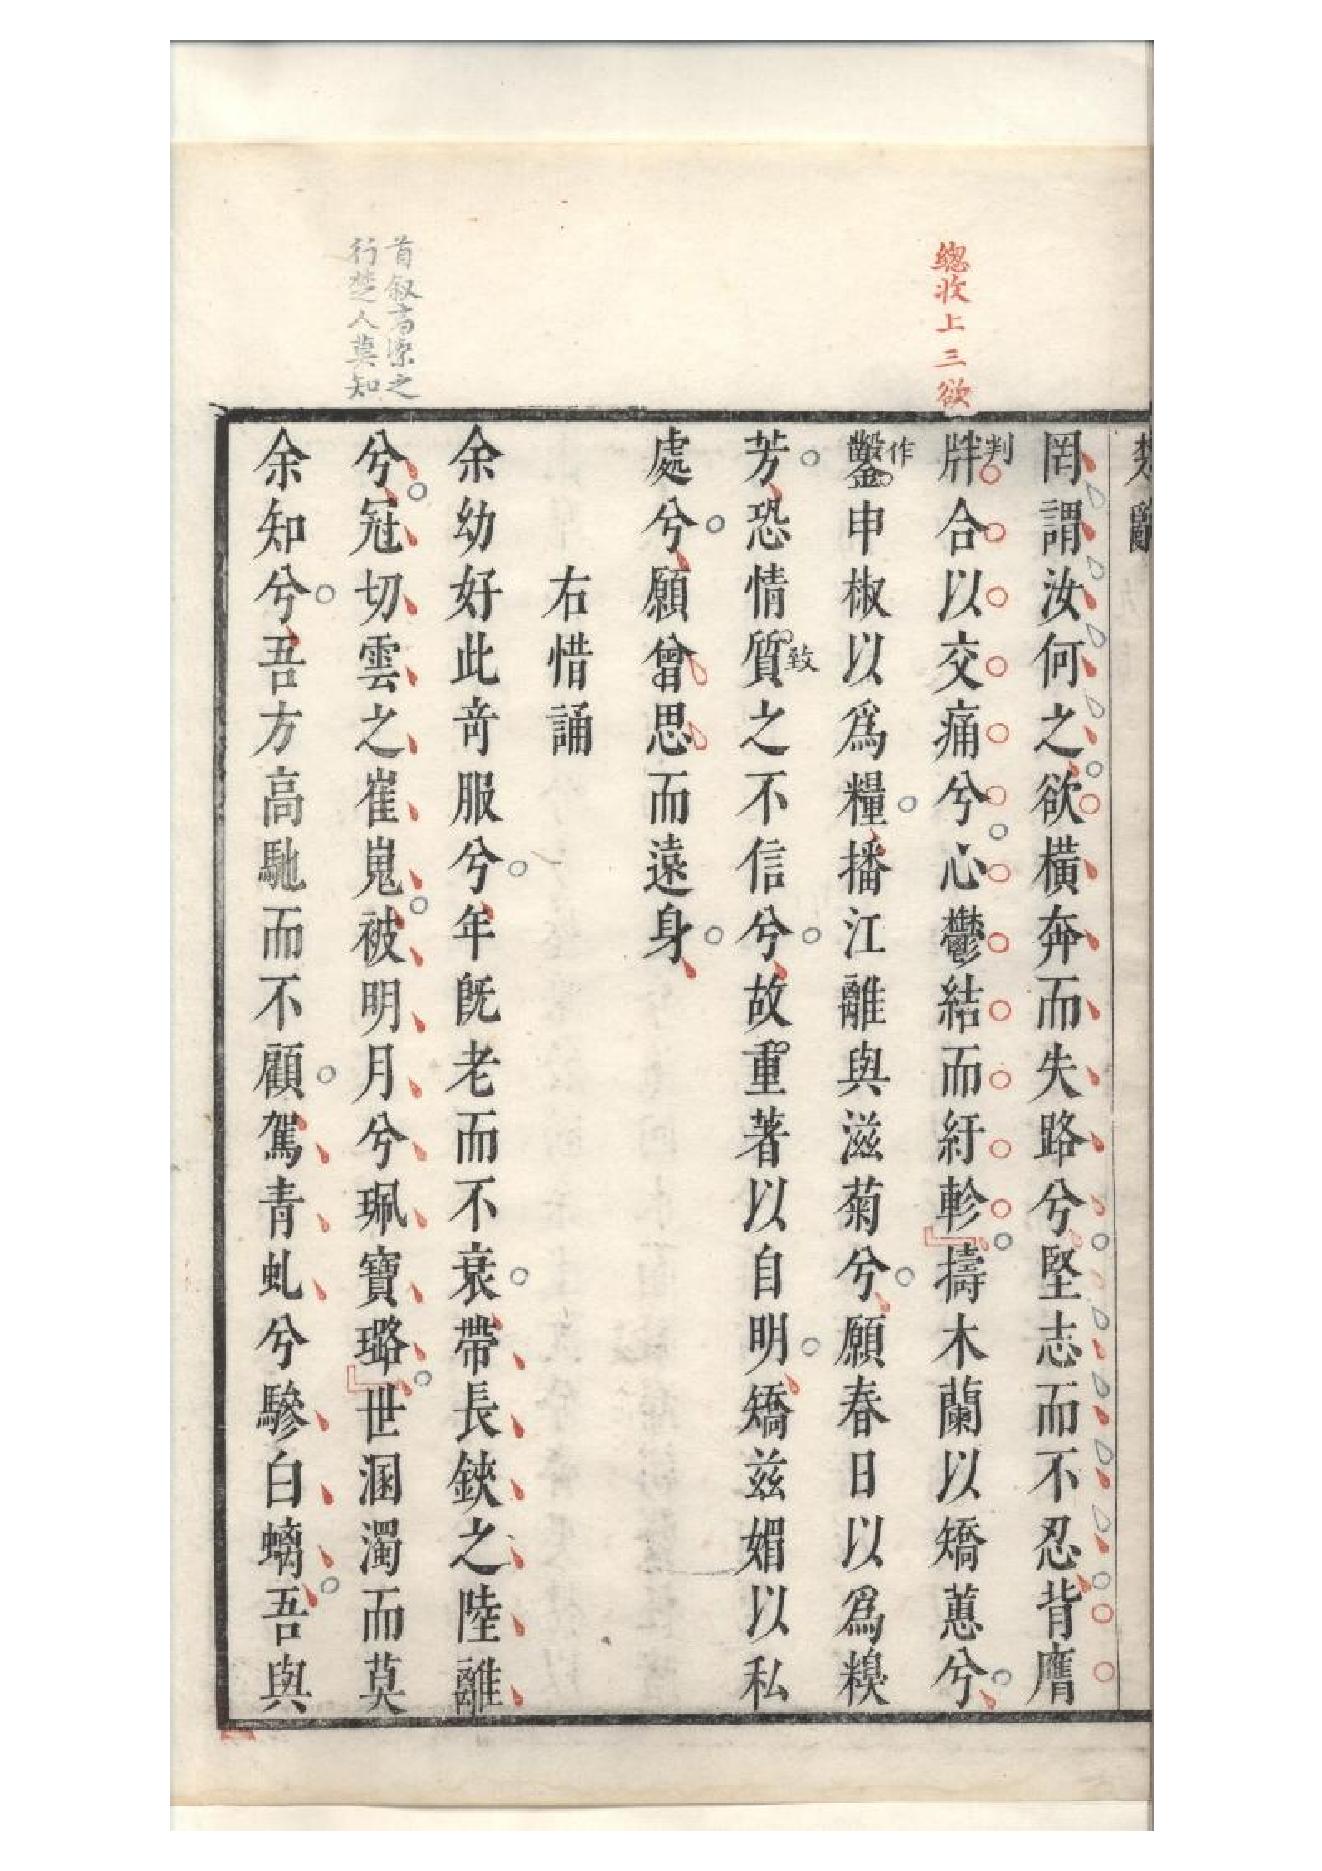 總收上三欲
首叙高潔之
行楚人莫知
楚辭
罔謂汝何之欲橫奔而失路兮堅志而不忍背膺
判
牉合以交痛兮心鬱結而紆軫擣木蘭以矯蕙兮
作
鑿申椒以爲糧播江離與滋菊兮願春日以爲糗
芳恐情質之不信兮故重著以自明矯兹媚以私
致
處兮願曾思而遠身
右惜誦
余幼好此奇服兮年旣老而不衰帶長鋏之陸離
兮冠切雲之崔嵬被明月兮珮寶璐世溷濁而莫
余知兮吾方高馳而不顧駕青虬兮驂白螭吾與